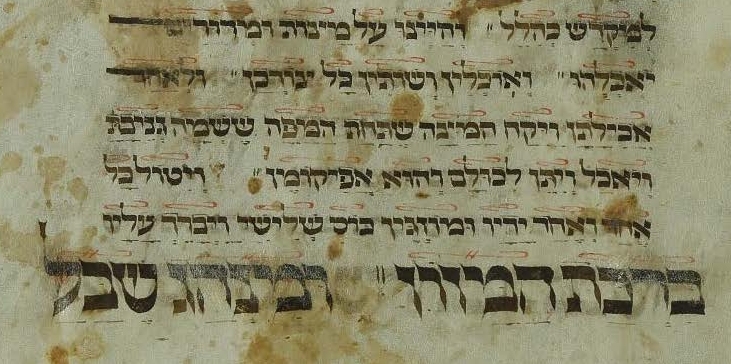 למקדש כהלל ״ והיינו על מינוה ומרור
יאכלהו ״ ואוכלין ושותין כל צורכן ״ ולאחר
אכילתו ויקח המיצה שתחת המפה ששמה גניבת
ויאכל ויתן לכולם והוא אפיקומין ״ ויטול כל
אחד ואחד ידיו ומוזגין כוס שלישי ויברך עליו
ברכת המזון ״ ומינהג שכל